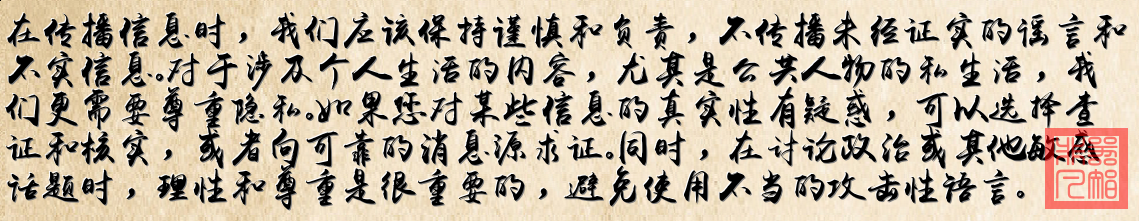 在传播信息时，我们应该保持谨慎和负责，不传播未经证实的谣言和
不实信息。对于涉及个人生活的内容，尤其是公共人物的私生活，我
们更需要尊重隐私。如果您对某些信息的真实性有疑惑，可以选择查
证和核实，或者向可靠的消息源求证。同时，在讨论政治或其他敏感
话题时，理性和尊重是很重要的，避免使用不当的攻击性语言。